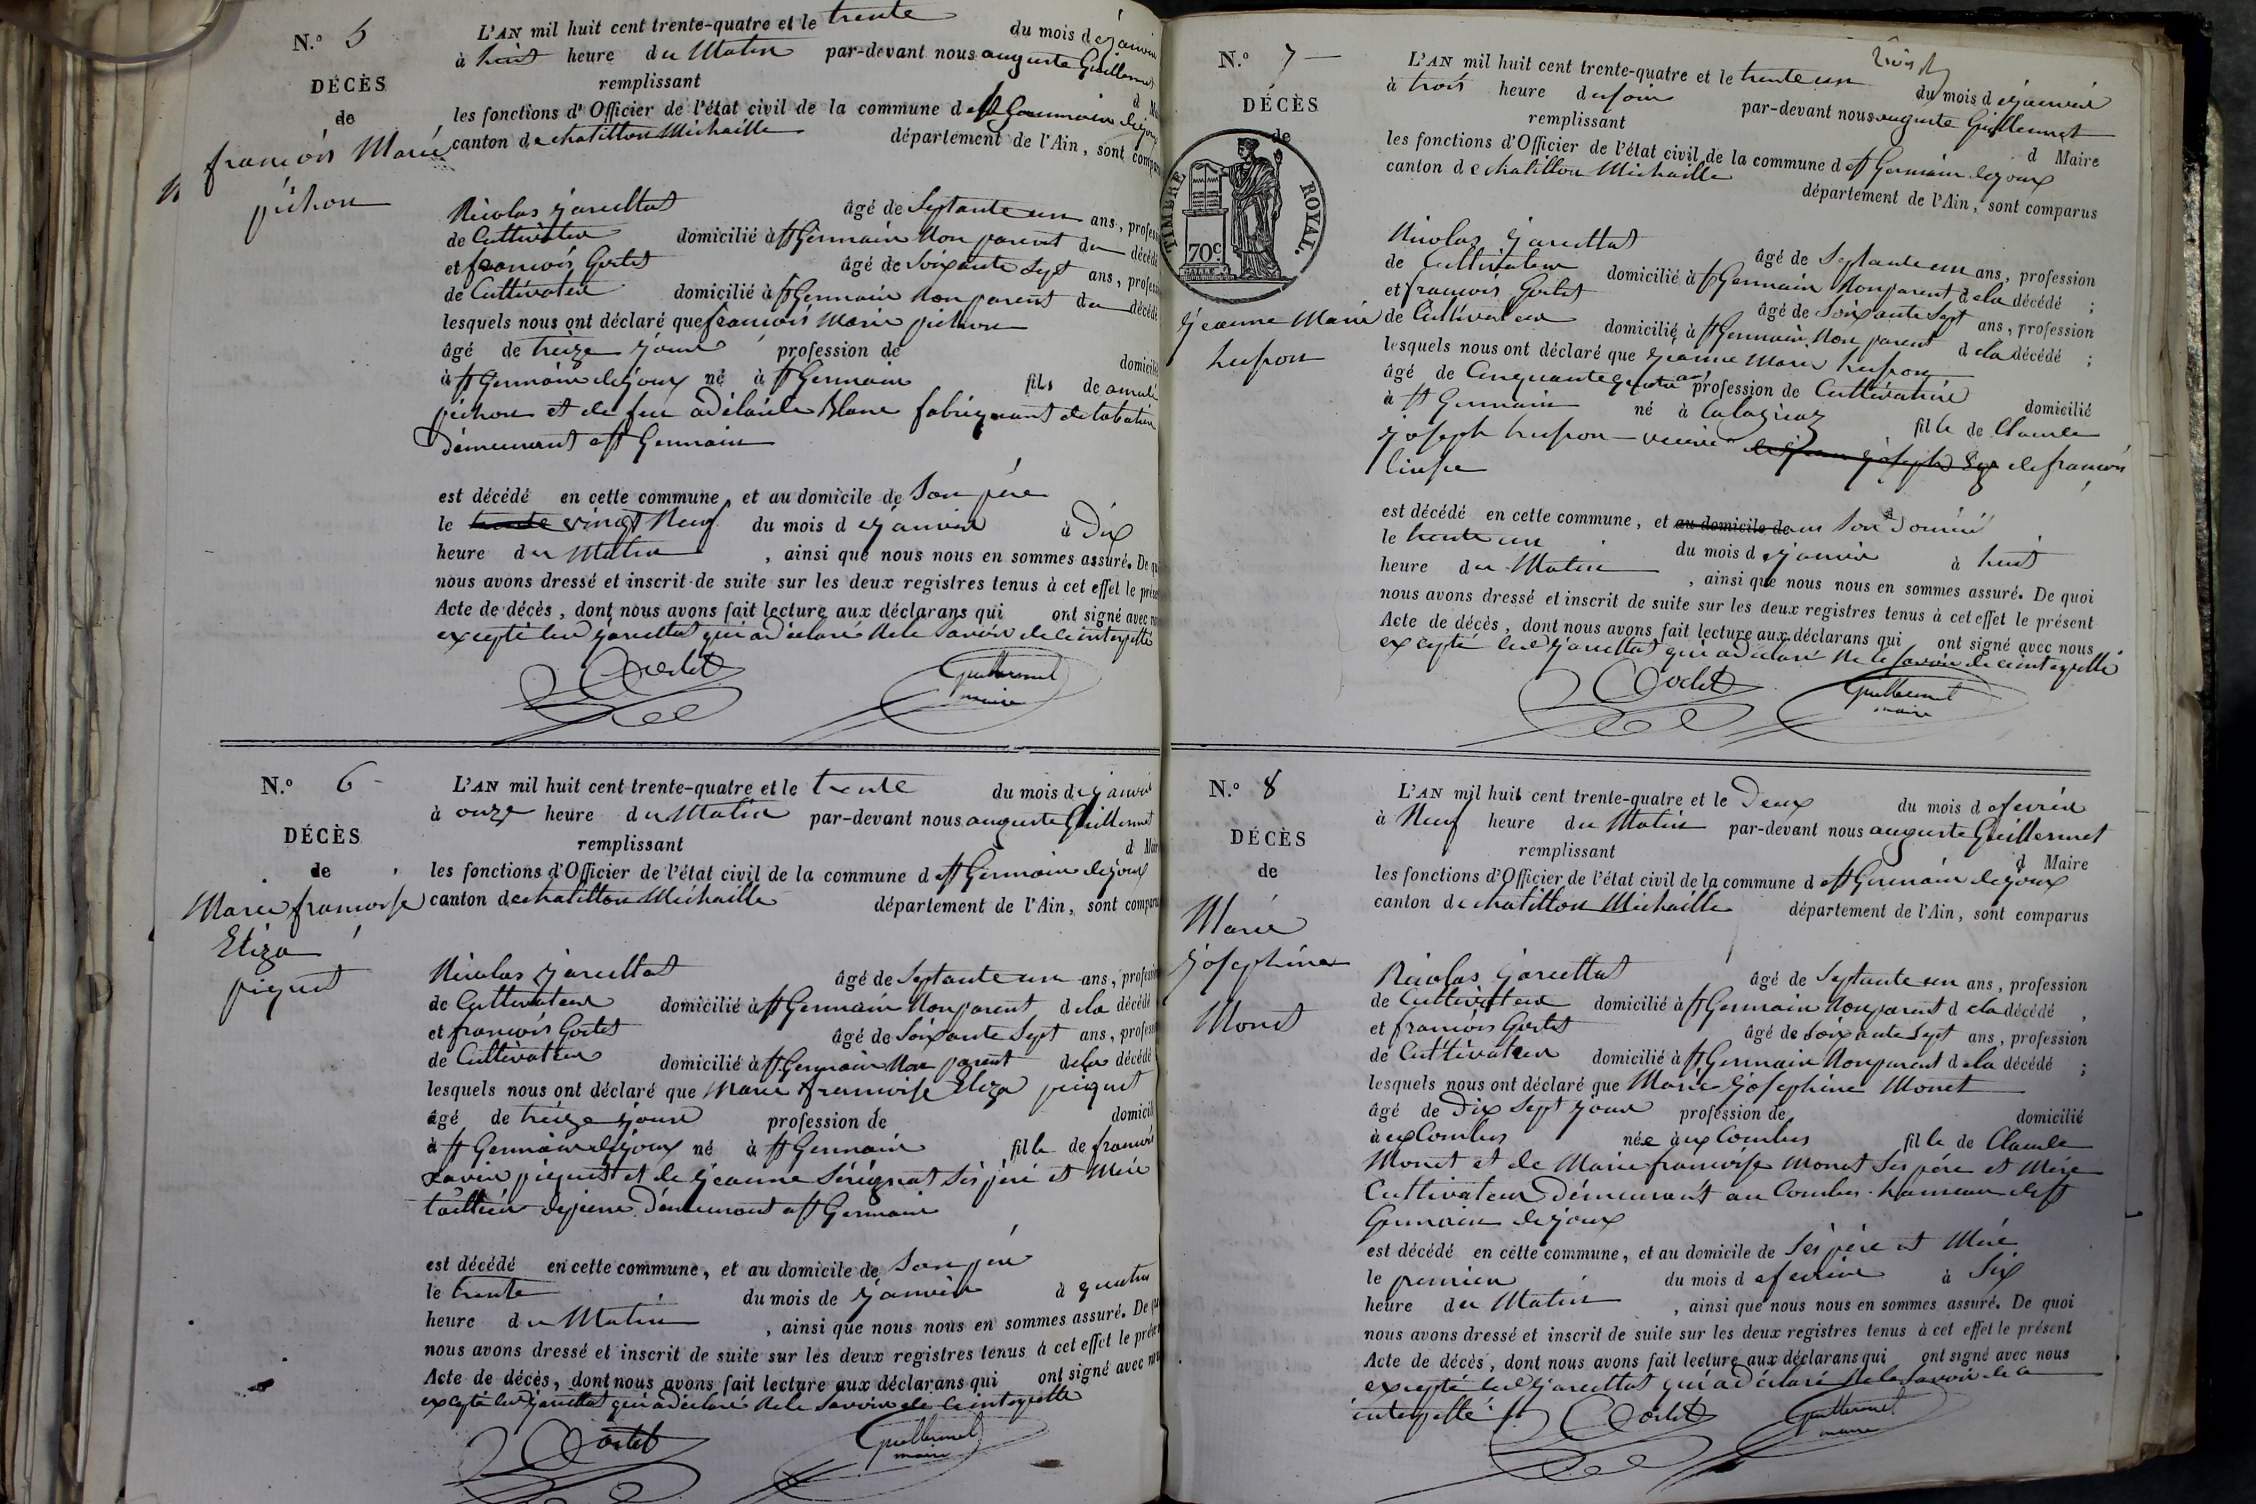 N.º 5
DÉCÈS
de
françois Marie
pichon
L'AN mil huit cent trente-quatre et le trente du mois de janvier
à huit heure du Matin par-devant nous auguste Guillermet
remplissant
les fonctions d'Officier de l'état civil de la commune de st Germain de joux
canton de chatillon Michaille département de l'Ain, sont
Nicolas jarullat âgé de Septante un ans,
de Cultivateur domicilié à st Germain Non parent du décédé
et françois Godet âgé de Soixante Sept ans,
de Cultivateur domicilié à st Germain Non parent du décédé
lesquels nous ont déclaré que françois Marie pichon
âgé de treize jours profession de
à st Germain de joux né à st Germain fils de
pichon et de feu adélaïde Blanc fabriquant de
Demeurant a st Germain
est décédé en cette commune, et au domicile de Son père
le trente vingt Neuf du mois de janvier à Dix
heure du Matin, ainsi que nous nous en sommes assuré.
nous avons dressé et inscrit de suite sur les deux registres tenus à cet effet le
Acte de décès, dont nous avons fait lecture aux déclarans qui ont signé avec
excepté led jarullat qui a déclaré Ne le Savoir de ce interpellé
Godet
Guillermet
maire
N.º 6
DÉCÈS
de
Marie françoise
Eliza
piquet
L'AN mil huit cent trente-quatre et le trente du mois de janvier
à onze heure du Matin par-devant nous auguste Guillermet
remplissant
les fonctions d'Officier de l'état civil de la commune de st Germain de joux
canton de chatillon Michaille département de l'Ain, sont
Nicolas jarullat âgé de Septante un ans,
de Cultivateur domicilié à st Germain Non parent de la décédé
et françois Godet âgé de Soixante Sept ans,
de Cultivateur domicilié à st Germain Non parent de la décédé
lesquels nous ont déclaré que Marie françoise Eliza piquet
âgé de treize jours profession de
à st Germain de joux né à st Germain fille de françois
Xavier piquet et de jeanne Sérignat Ses père et Mère
tailleur de pierre Demeurant a st Germain
est décédé en cette commune, et au domicile de Son père
le trente du mois de janvier à quatre
heure du Matin, ainsi que nous nous en sommes assuré.
nous avons dressé et inscrit de suite sur les deux registres tenus à cet effet le
Acte de décès, dont nous avons fait lecture aux déclarans qui ont signé avec
excepté led jarullat qui a déclaré Ne le Savoir de ce interpellé
Godet
Guillermet
maire
N.º 7
DÉCÈS
de
TIMBRE ROYAL.
70c
jeanne Marie
husson
L'AN mil huit cent trente-quatre et le trente un du mois de janvier
à trois heure du soir par-devant nous auguste Guillermet
remplissant d Maire
les fonctions d'Officier de l'état civil de la commune de st Germain de joux
canton de chatillon Michaille département de l'Ain, sont comparus
Nicolas jarullat âgé de Septante un ans, profession
de Cultivateur domicilié à st Germain Non parent de la décédé ;
et françois Godet âgé de Soixante Sept ans, profession
de Cultivateur domicilié à st Germain Non parent de la décédé ;
lesquels nous ont déclaré que jeanne Marie husson
âgé de Cinquante quatre ans profession de Cultivatrice domicilié
à st Germain né à fille de Claude
joseph husson veuve de françois
est décédé en cette commune, et au domicile de en Son
le trente un du mois de janvier à huit
heure du Matin, ainsi que nous nous en sommes assuré. De quoi
nous avons dressé et inscrit de suite sur les deux registres tenus à cet effet le présent
Acte de décès, dont nous avons fait lecture aux déclarans qui ont signé avec nous
excepté led jarullat qui a déclaré Ne le Savoir de ce interpellé
Godet
Guillermet
maire
N.º 8
DÉCÈS
de
Marie
josephine
Monet
L'AN mil huit cent trente-quatre et le Deux du mois de fevrier
à Neuf heure du Matin par-devant nous auguste Guillermet
remplissant d Maire
les fonctions d'Officier de l'état civil de la commune de st Germain de joux
canton de chatillon Michaille département de l'Ain, sont comparus
Nicolas jarullat âgé de Septante un ans, profession
de Cultivateur domicilié à st Germain Non parent de la décédé
et françois Godet âgé de Soixante Sept ans, profession
de Cultivateur domicilié à st Germain Non parent de la décédé ;
lesquels nous ont déclaré que Marie josephine Monet
âgé de Dix Sept jours profession de domicilié
à ux Combes née à ux Combes fille de Claude
Monet et de Marie françoise Monet Ses père et Mère
Cultivateur Demeurant au Combes hameau de st
Germain de joux
est décédé en cette commune, et au domicile de Ses père et Mère
le premier du mois de fevrier à Six
heure du Matin, ainsi que nous nous en sommes assuré. De quoi
nous avons dressé et inscrit de suite sur les deux registres tenus à cet effet le présent
Acte de décès, dont nous avons fait lecture aux déclarans qui ont signé avec nous
excepté led jarullat qui a déclaré Ne le Savoir de ce
interpellé
Godet
Guillermet
maire